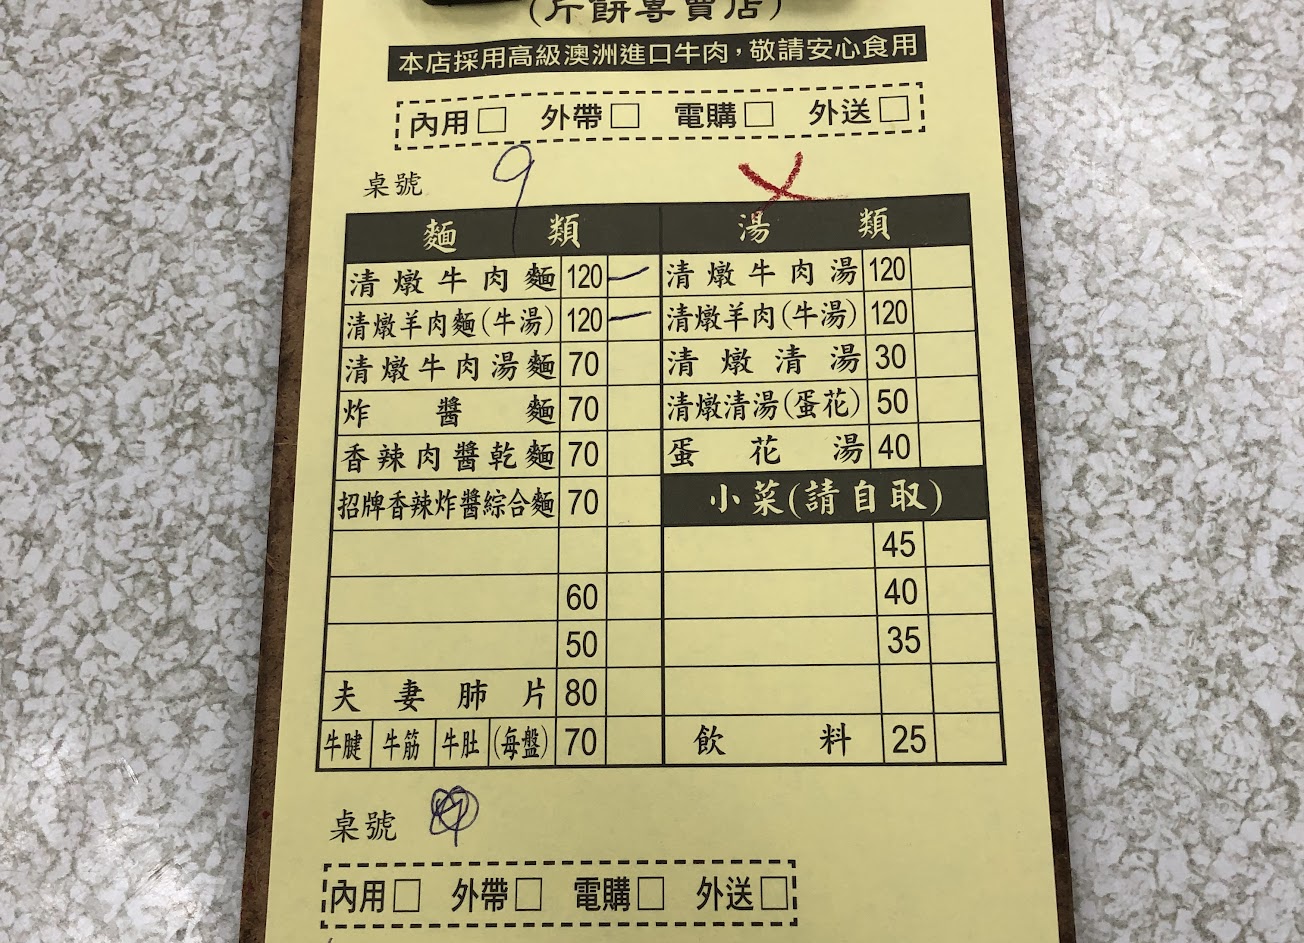 (斤餅專賣店)
本店採用高級澳洲進口牛肉，敬請安心食用
內用□ 外帶□ 電購□ 外送□
桌號 9
麵類 湯類
清燉牛肉麵 120 一 清燉牛肉湯 120
清燉羊肉麵(牛湯) 120 一 清燉羊肉(牛湯) 120
清燉牛肉湯麵 70 清燉清湯 30
炸醬麵 70 清燉清湯(蛋花) 50
香辣肉醬乾麵 70 蛋花湯 40
招牌香辣炸醬綜合麵 70 小菜(請自取)
45
60 40
50 35
夫妻肺片 80
牛腱 牛筋 牛肚 (每盤) 70 飲料 25
桌號
內用□ 外帶□ 電購□ 外送□